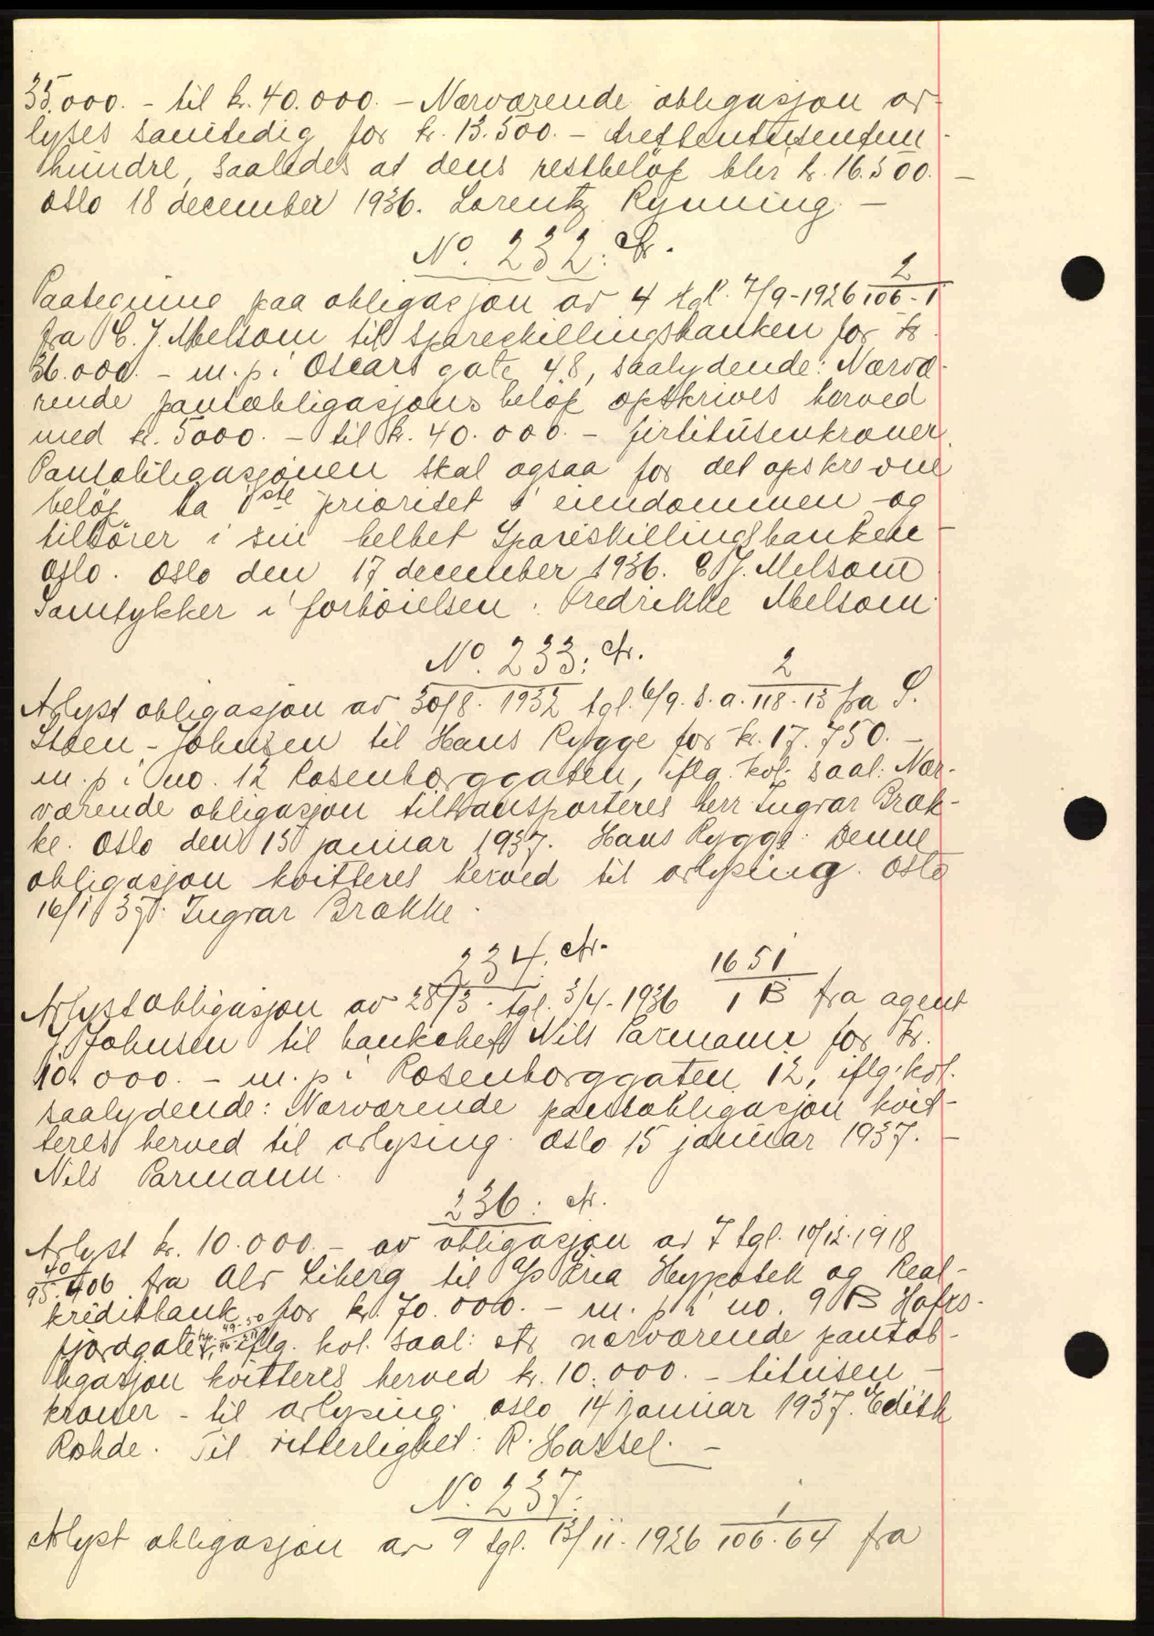 35.000. - til kr. 40.000. - Nærværende obligasjon av-
lyses samtidig for kr. 13.500. - trettentusenfem
hundre, saaledes at dens restbeløp blir kr. 16.500. -
Oslo 18 december 1936. Lorentz Rynning -
No. 232:
Paategning paa obligasjon av 4 tgl. 7/9-1926 2/106-1
fra C. J. Melsom til Spareskillingsbanken for kr.
36.000. - m. p. i Oscars gate 48, saalydende: Nærvæ-
rende pantobligasjons beløp opskrives herved
med kr. 5000. - til kr. 40.000. - firtitusenkroner.
Pantobligasjonen skal ogsaa for det opskrevne
beløp ha 1ste prioritet i eiendommen og
tilhører i sin helhet Spareskillingsbanken
Oslo. Oslo den 17 december 1936. C. J. Melsom
Samtykker i forhøielsen. Fredrikke Melsom.
No. 233:
Avlyst obligasjon av 30/8. 1932 tgl. 6/9. s. a. 2/118-13 fra S.
Stoen-Johnsen til Hans Rygge for kr. 17.750. -
m. p. i no. 12 Rosenborggaten, iflg. hol. saal: Nær-
værende obligasjon tiltransporteres herr Ingvar Bråk-
ke. Oslo den 15 januar 1937. Hans Rygge. Denne
obligasjon kvitteres herved til avlysing. Oslo
16/1 37. Ingvar Brakke.
234.
Avlyst obligasjon av 28/3. tgl. 3/4-1936 1651/1 B fra agent
Johnsen til banksjef Nils Parmann for kr.
10.000. - m. p. i Rosenborggaten 12, iflg. hol.
saalydende: Nærværende pantobligasjon kvit-
teres herved til avlysing. Oslo 15 januar 1937. -
Nils Parmann.
236:
Avlyst kr. 10.000. - av obligasjon av 7 tgl. 10/12-1918
40/95.406 fra Alv Liberg til A/S Kria Hypotek og Real-
kreditbank for kr. 70.000. - m. p. i no. 9 B Hafrs-
fjordgate iflg. hol. saal: Av nærværende pantob-
ligasjon kvitteres herved kr. 10.000. - titusen -
kroner - til avlysing. Oslo 14 januar 1937. Edith
Rohde. Til vitterlighet: R. Hassel. -
No. 237.
Avlyst obligasjon av 9 tgl. 13/11-1926 1/106.64 fra